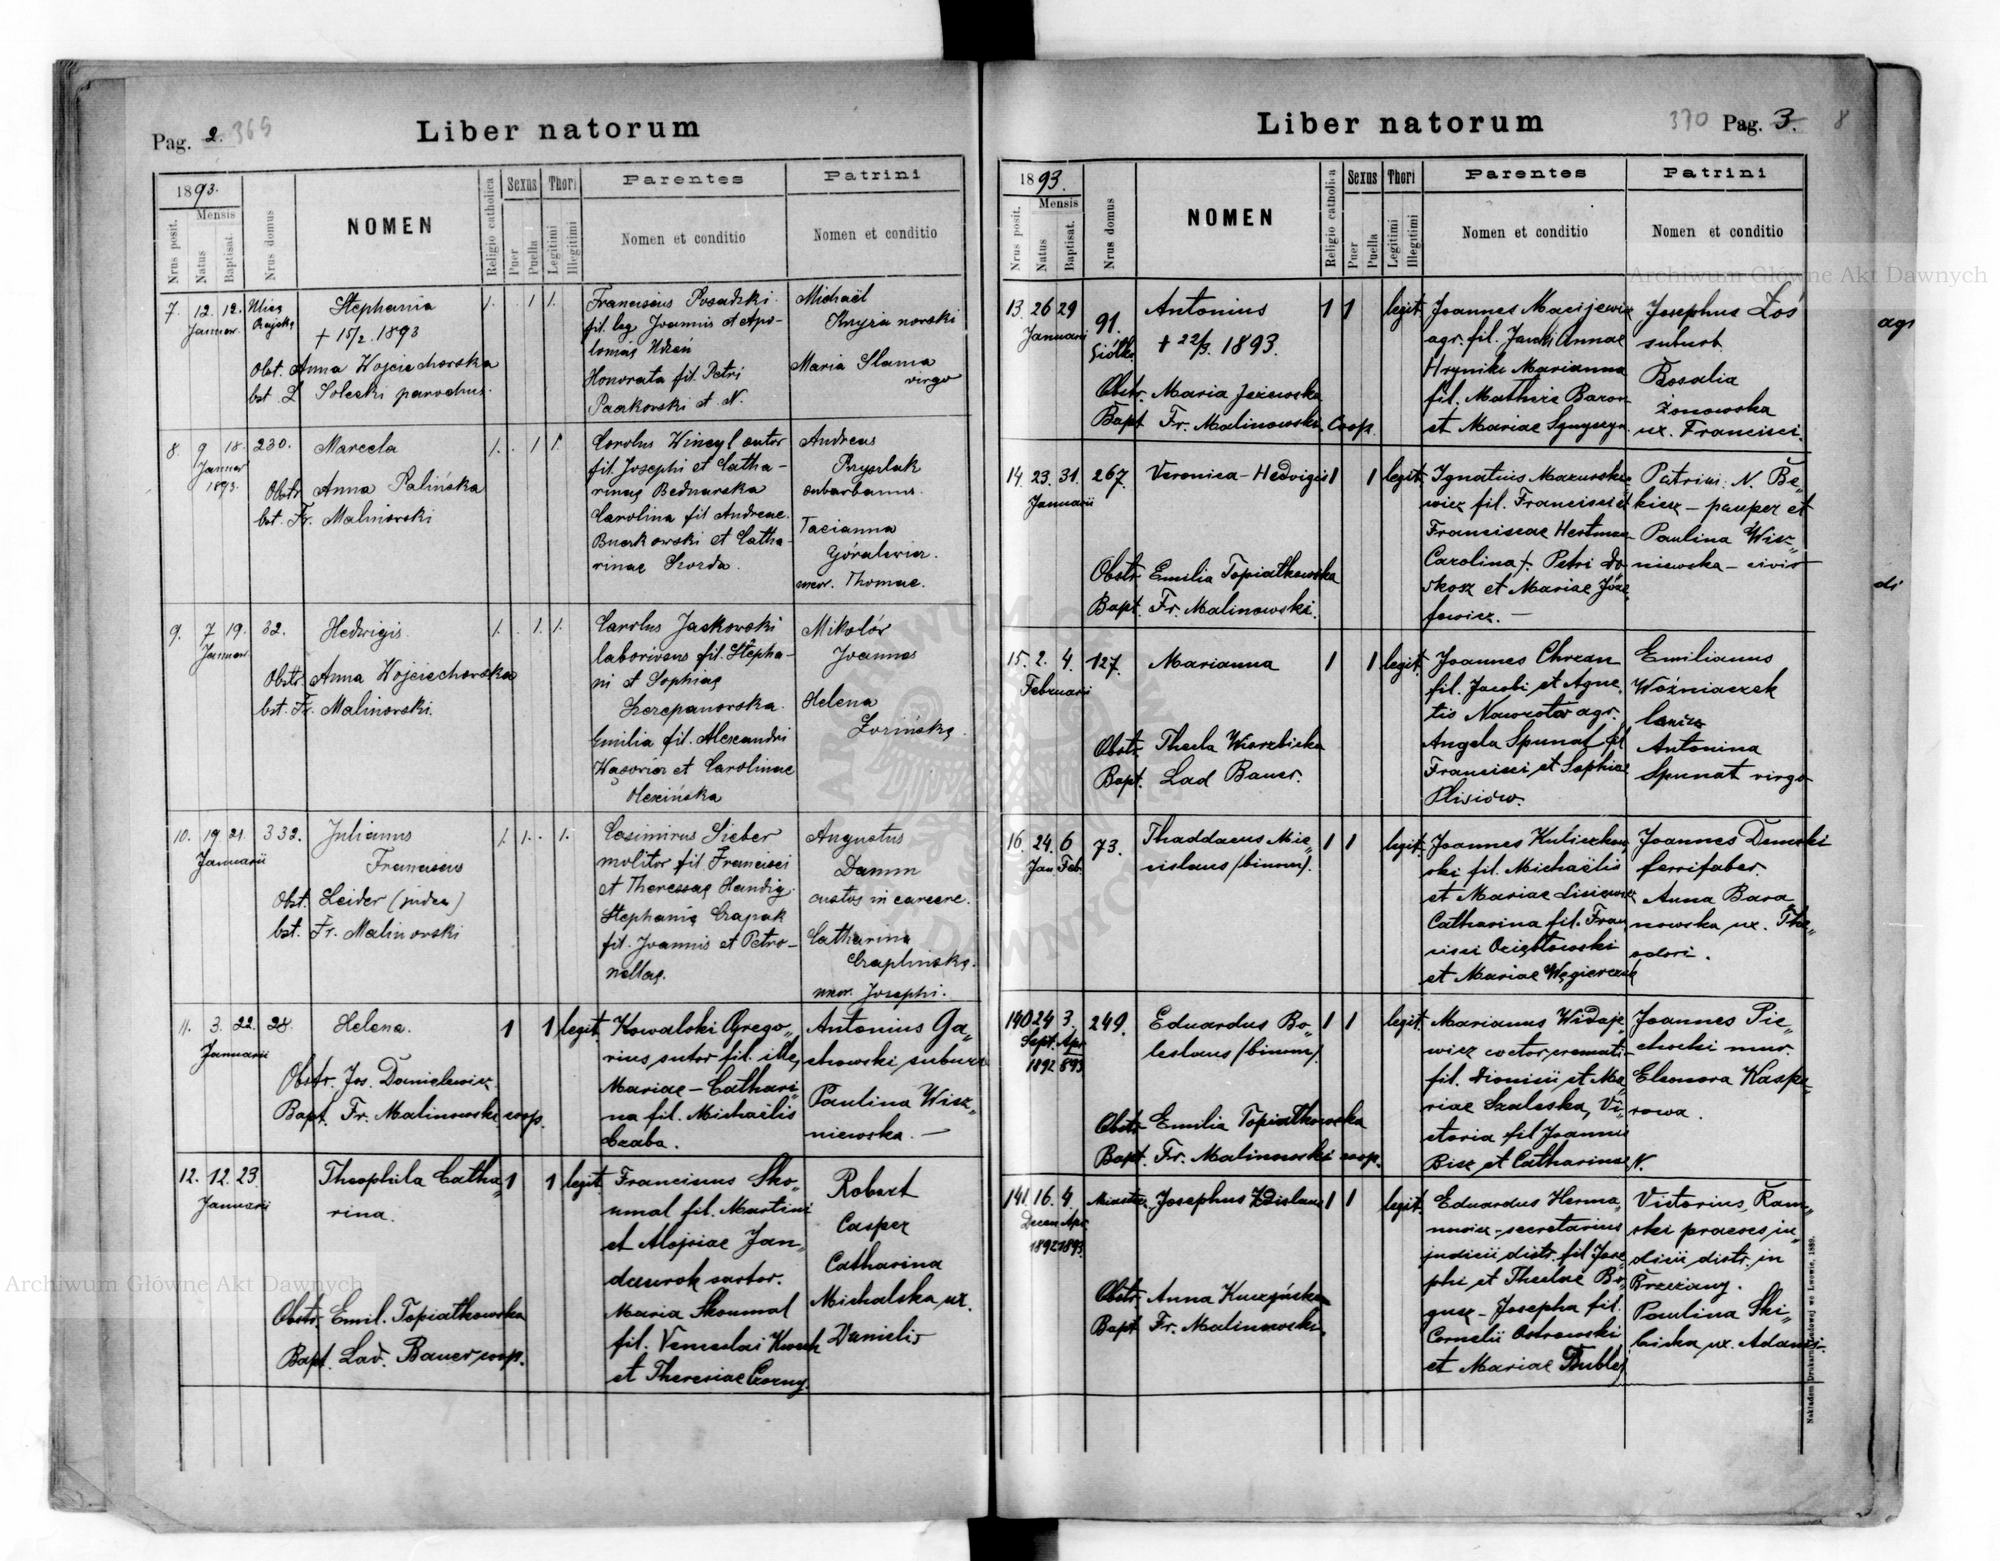 Pag. 2. 369
Liber natorum
1893.
Mensis
Nrus posit.
Natus
Baptisat.
Nrus domus
NOMEN
Religio catholica
Sexus
Puer
Puella
Thori
Legitimi
Illegitimi
Parentes
Nomen et conditio
Patrini
Nomen et conditio
7. 12. 12. Ulica
Januar.
Stephania
+ 15/2. 1893
Obst. Anna Wojciechowska
bat. Solecki parochus.
1. 1 1.
Franciscus Posadzki
fil. leg Joannis et Apo-
Honorata fil. Petri
et N.
Michaël
Maria Slama
virgo
8. 9 18. 230.
Januar
1893.
Marcela
Obst. Anna Palińska
bat. Fr. Malinowski
1. 1 1.
Carolus
fil. Josephi et Catha-
rinae Bednarska
Carolina fil Andreae
et Catha-
rinae
Andreas
suburbanus.
Tacianna
uxor. Thomae.
9. 7 19. 32.
Januar
Hedwigis.
Obstr. Anna Wojciechowska
bat. Fr. Malinowski.
1. 1. 1.
Carolus Jaskowski
laborivens fil. Stepha-
ni et Sophiae
Szczepanowska.
Emilia fil. Alexandri
et Carolinae
Mikołów
Joannes
Helena
10. 19 21. 332.
Januarii
Julianus
Franciscus
Obst. Leider (judea)
bat. Fr. Malinowski
1. 1. 1.
Casimirus Sieber
molitor fil Francisci
et Theressae
Stephania Czapak
fil. Joannis et Petro-
nellae.
Augustus
Damm
custos in carcere.
Catharina
Czaplinska.
uxor. Josephi.
11. 3. 22. 28.
Januarii
Helena.
Obstr. Jos. Danielewicz
Bapt. Fr. Malinowski coop.
1 1 legit.
Kowalski Grego„
rius sutor fil. ille,
Mariae – Cathari„
na fil. Michaëlis
Czaba.
Antonius Ga„
chowski suburb
Paulina Wisz„
niewska. –
12. 12. 23.
Januarii
Theophila Catha„
rina.
Obstr. Emil. Topiatkowska
Bapt. Lad. Bauer, coop.
1 1 legit.
Franciscus Sko„
umal fil. Martini
et Alojsiae Jan„
sartor.
Maria Skoumal
fil. Venceslai
et Theresiae Czerny.
Robert
Casper
Catharina
Michalska, ux.
Danielis
Liber natorum
370 Pag. 3. 8
1893.
Mensis
Nrus posit.
Natus
Baptisat.
Nrus domus
NOMEN
Religio catholica
Sexus
Puer
Puella
Thori
Legitimi
Illegitimi
Parentes
Nomen et conditio
Patrini
Nomen et conditio
13. 26 29 91.
Januarii
Antonius
+ 22/3. 1893.
Obstr. Maria Jeżewska
Bapt. Fr. Malinowski, coop.
1 1 legit.
Joannes Macijewicz
agr. fil. Jacobi Annae
Marianna
fil. Mathiae Baron
et Mariae
Josephus Łoś
suburb.
Rosalia
Żonowska
ux. Francisci.
14. 23. 31. 267.
Januarii
Veronica – Hedvigis
Obstr. Emilia Topiatkowska
Bapt. Fr. Malinowski.
1 1 legit.
Ignatius Mazurkie„
wicz fil. Francisci et
Franciscae
Carolina f. Petri
et Mariae Józe„
fowicz. –
Patrini: N. Be„
kier – pauper et
Paulina Wisz„
niewska – civis
15. 2. 4. 127.
Februarii
Marianna
Obstr. Thecla Wierzbicka
Bapt. Lad Bauer.
1 1 legit.
Joannes Chrzan
fil. Jacobi et Agne„
tis Nawrotów agr.
Angela Spunat fil
Francisci et Sophiae
Plisiów.
Emilianus
Woźniaczek
Antonina
Spunat virgo
16. 24. 6 73.
Jan Feb.
Thaddaeus Mie„
cislaus /binom/.
1 1 legit.
Joannes Kuliczkow„
ski fil. Michaëlis
et Mariae
Catharina fil. Fran„
cisci
et Mariae
Joannes Dumski
ferrifaber.
Anna Bara„
nowska, ux. Theo„
odori.
140 24 3. 249.
Sept. Apr.
1892 893
Eduardus Bo„
leslaus /binom/.
Obstr. Emilia Topiatkowska
Bapt. Fr. Malinowski coop.
1 1 legit.
Marianus Widaje„
wicz
fil. Dionisii et Ma„
riae Szaleska, Vi„
ctoria fil Joannis
Bisz et Catharinae N.
Joannes Pie„
chocki mur.
Eleonora Kaspe„
rowa.
141. 16. 4.
Decem Apr.
1892 1893.
Josephus Zdislaus
Obstr. Anna Kuczyńska
Bapt. Fr. Malinowski.
1 1 legit.
Eduardus Herma„
nowicz – secretarius
judicii distr. fil Jose„
phi et Theclae Bo„
gusz – Josepha fil.
Cornelii Ostrowski
et Mariae
Victorius Ram„
ski praeses ju„
dicii distr. in
Brzeżany.
Paulina Ski„
bicka ux. Adami.
Nakładem Drukarni Ludowej we Lwowie. 1889.
Archiwum Główne Akt Dawnych
Archiwum Główne Akt Dawnych